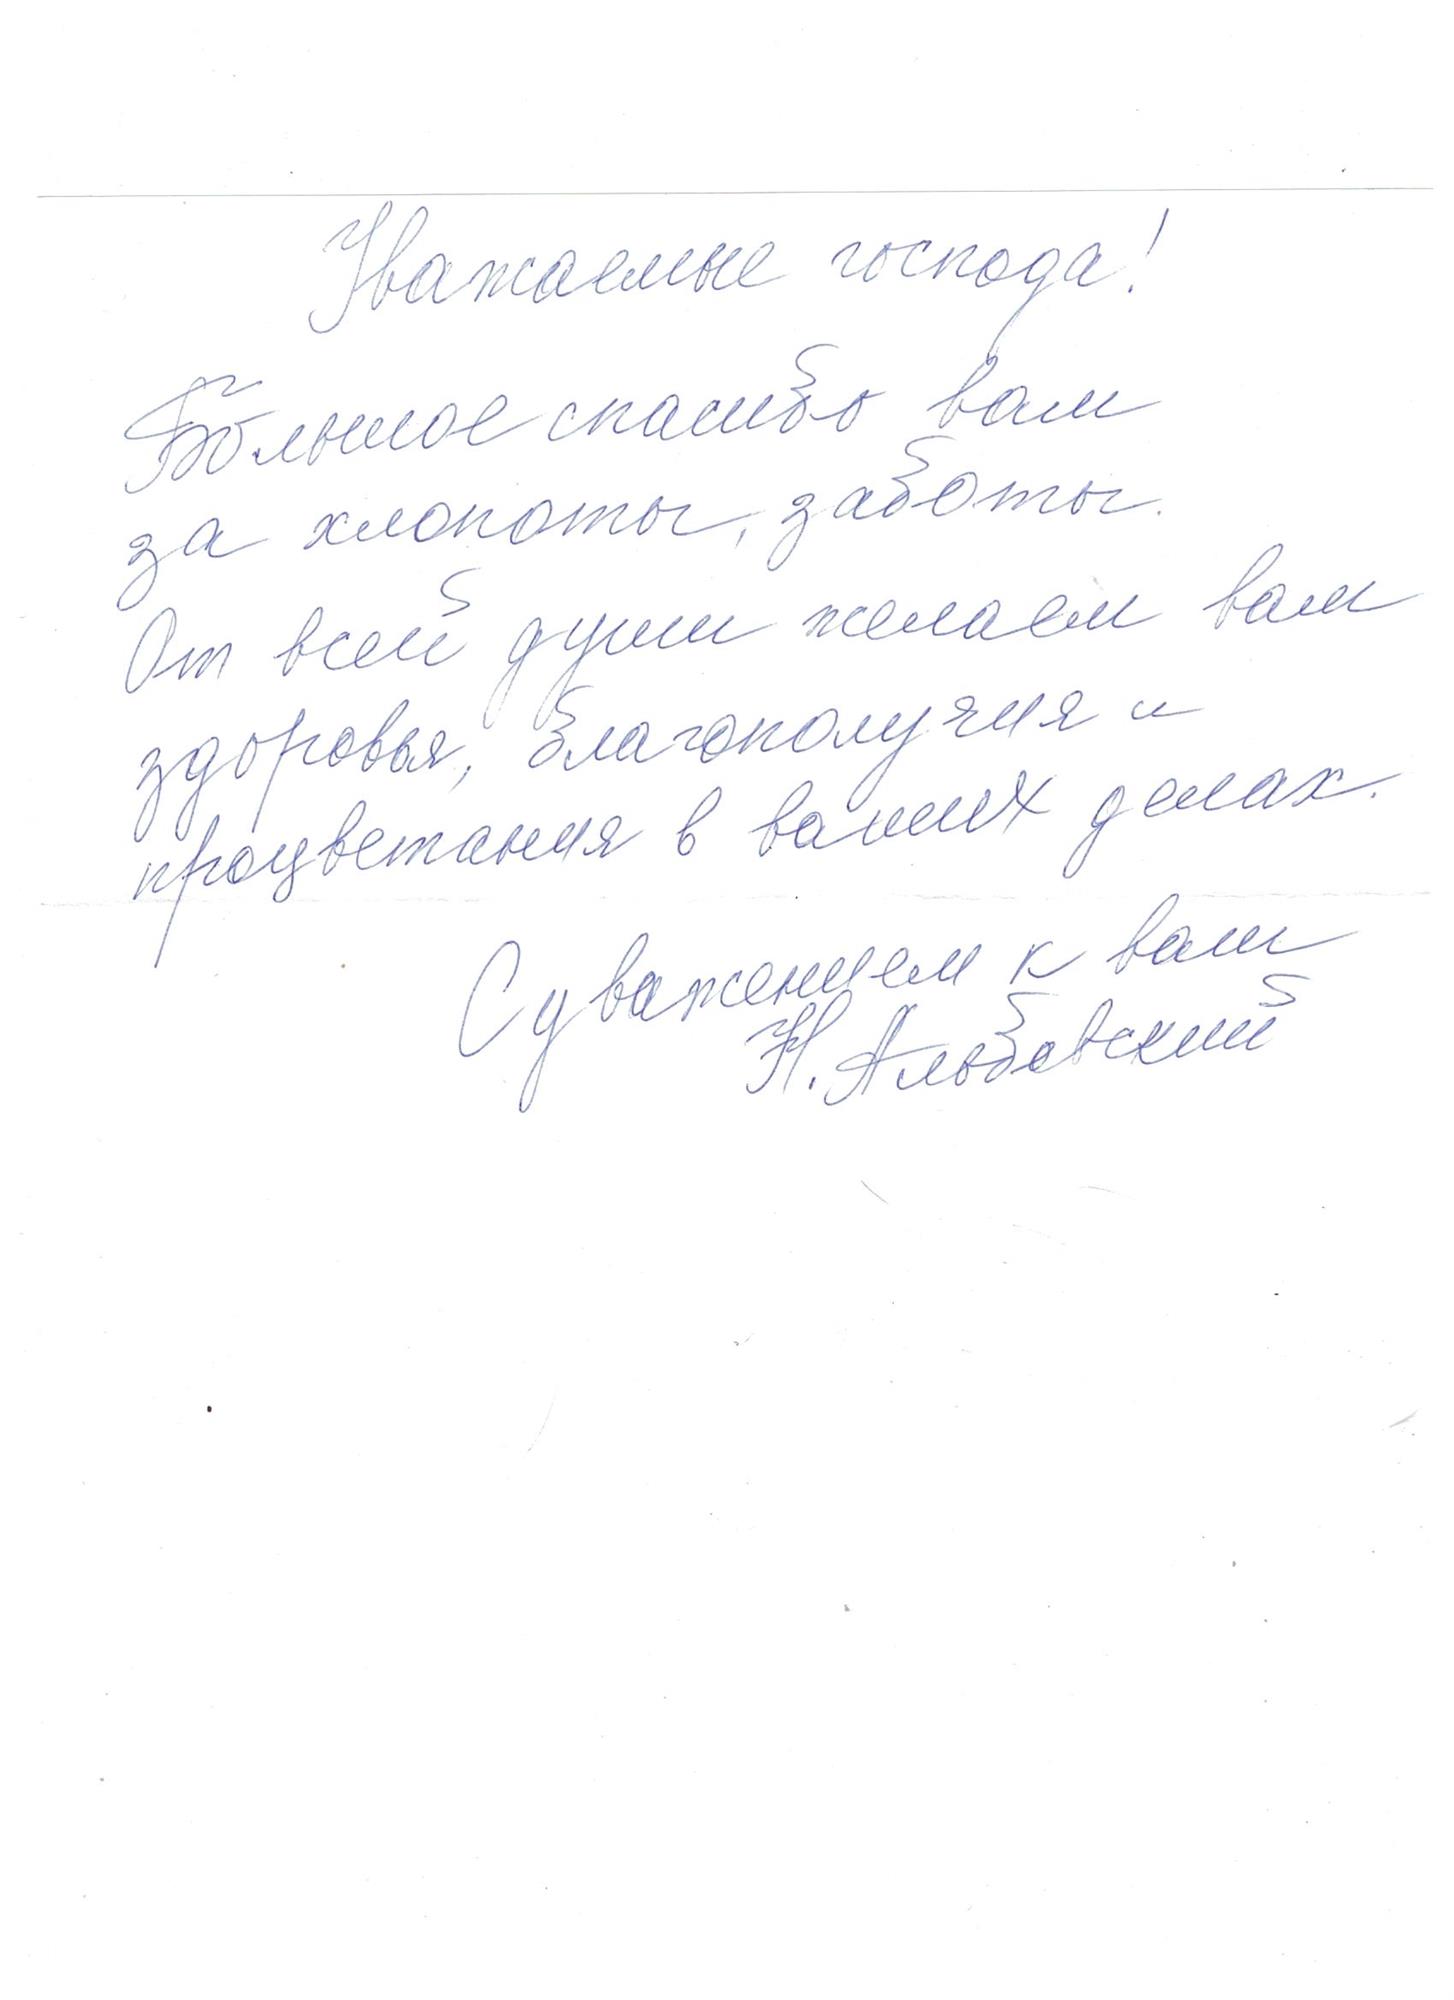 Уважаемые господа!
Большое спасибо вам
за хлопоты, заботы.
От всей души желаем вам
здоровья, благополучия и
процветания в ваших делах.
С уважением к вам
Н. Альбовский